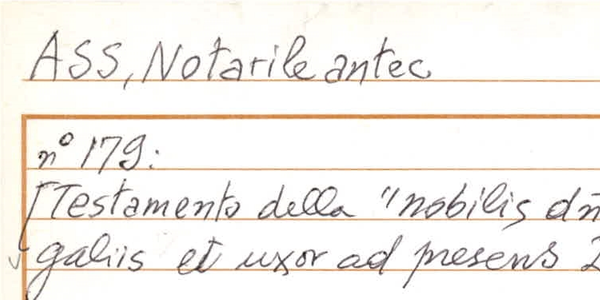 ASS, Notarile antec
n° 179:
[Testamento della "nobilis dñ
galiis et uxor ad presens